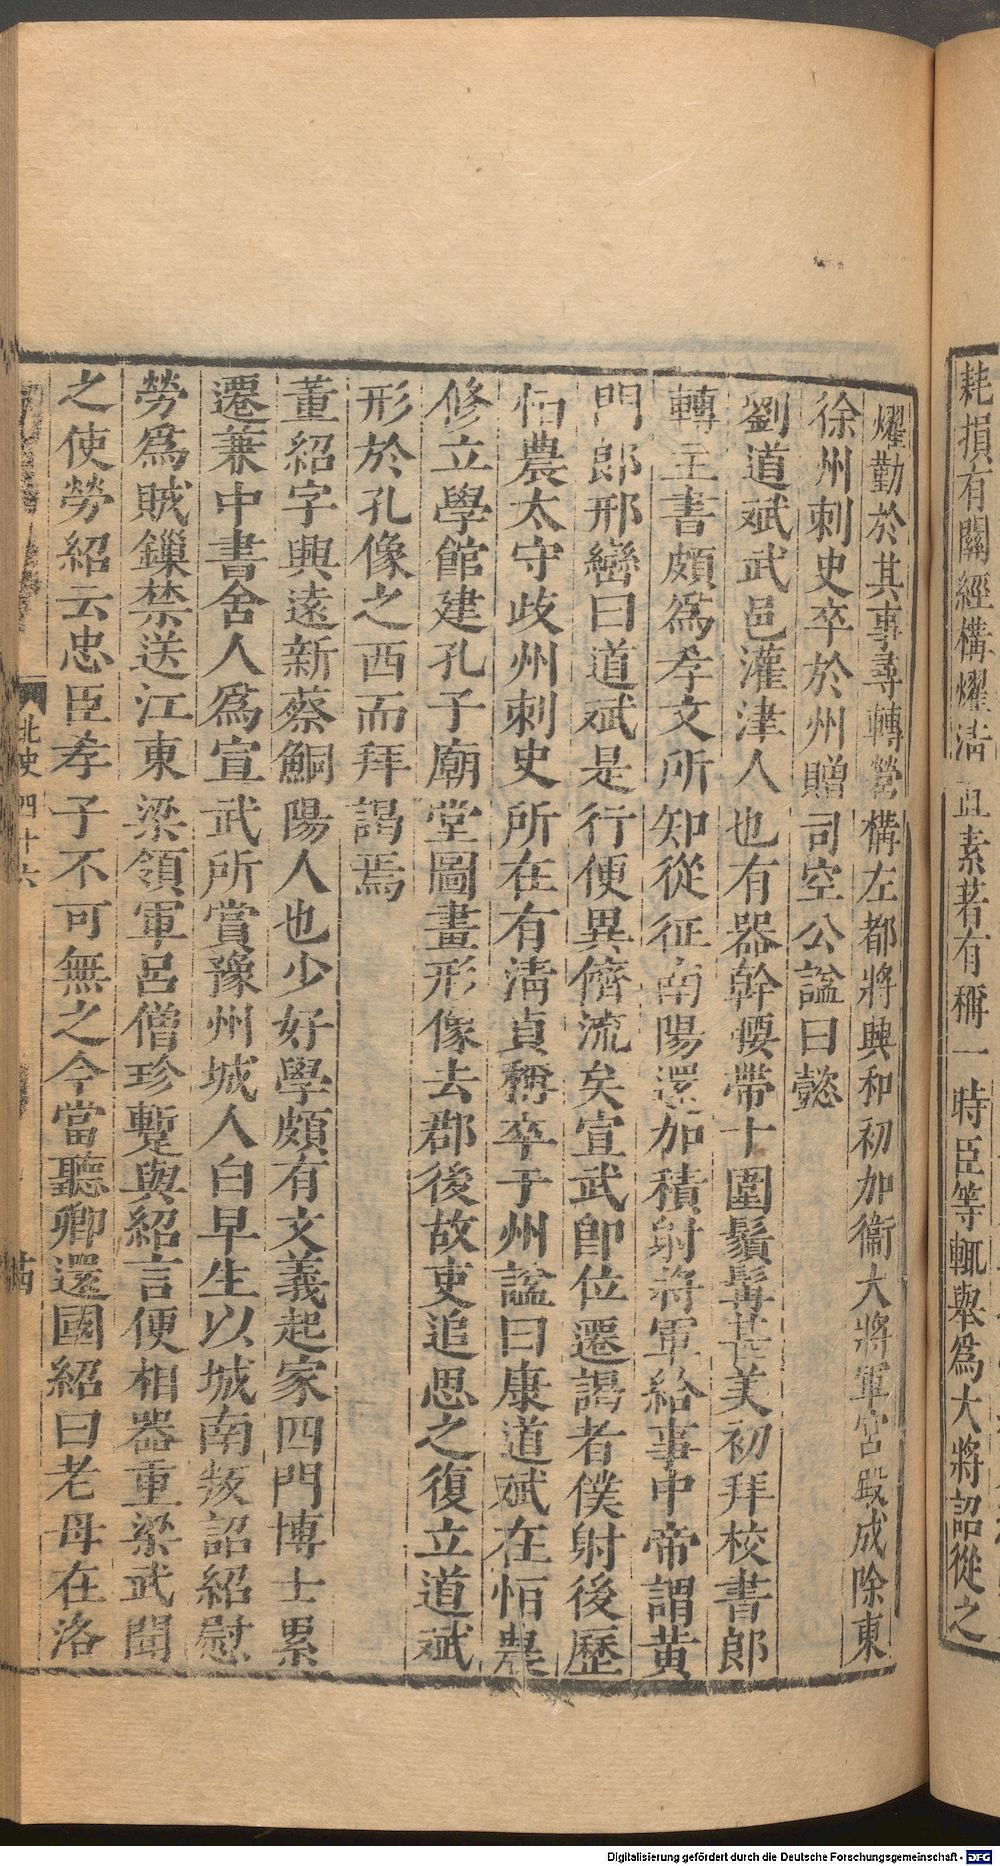 耗損有闕經構燿清貞素著有稱一時臣等輒舉爲大將詔從之
燿勤於其事尋轉營構左都將興和初加衞大將軍宮殿成除東
徐州刺史卒於州贈司空公諡曰懿
劉道斌武邑灌津人也有器幹腰帶十圍鬚髯甚美初拜校書郎
轉主書頗爲孝文所知從征南陽還加積射將軍給事中帝謂黃
門郎邢巒曰道斌是行便異儕流矣宣武卽位遷謁者僕射後歷
怕農太守歧州刺史所在有淸貞稱卒于州諡曰康道斌在怕農
修立學館建孔子廟堂圖畫形像去郡後故吏追思之復立道斌
形於孔像之西而拜謁焉
董紹字興遠新蔡鮦陽人也少好學頗有文義起家四門博士累
遷兼中書舍人爲宣武所賞豫州城人白早生以城南叛詔紹慰
勞爲賊鏁禁送江東梁領軍呂僧珍蹔與紹言便相器重梁武聞
之使勞紹云忠臣孝子不可無之今當聽卿還國紹曰老母在洛
北史四十六
Digitalisierung gefördert durch die Deutsche Forschungsgemeinschaft - DFG